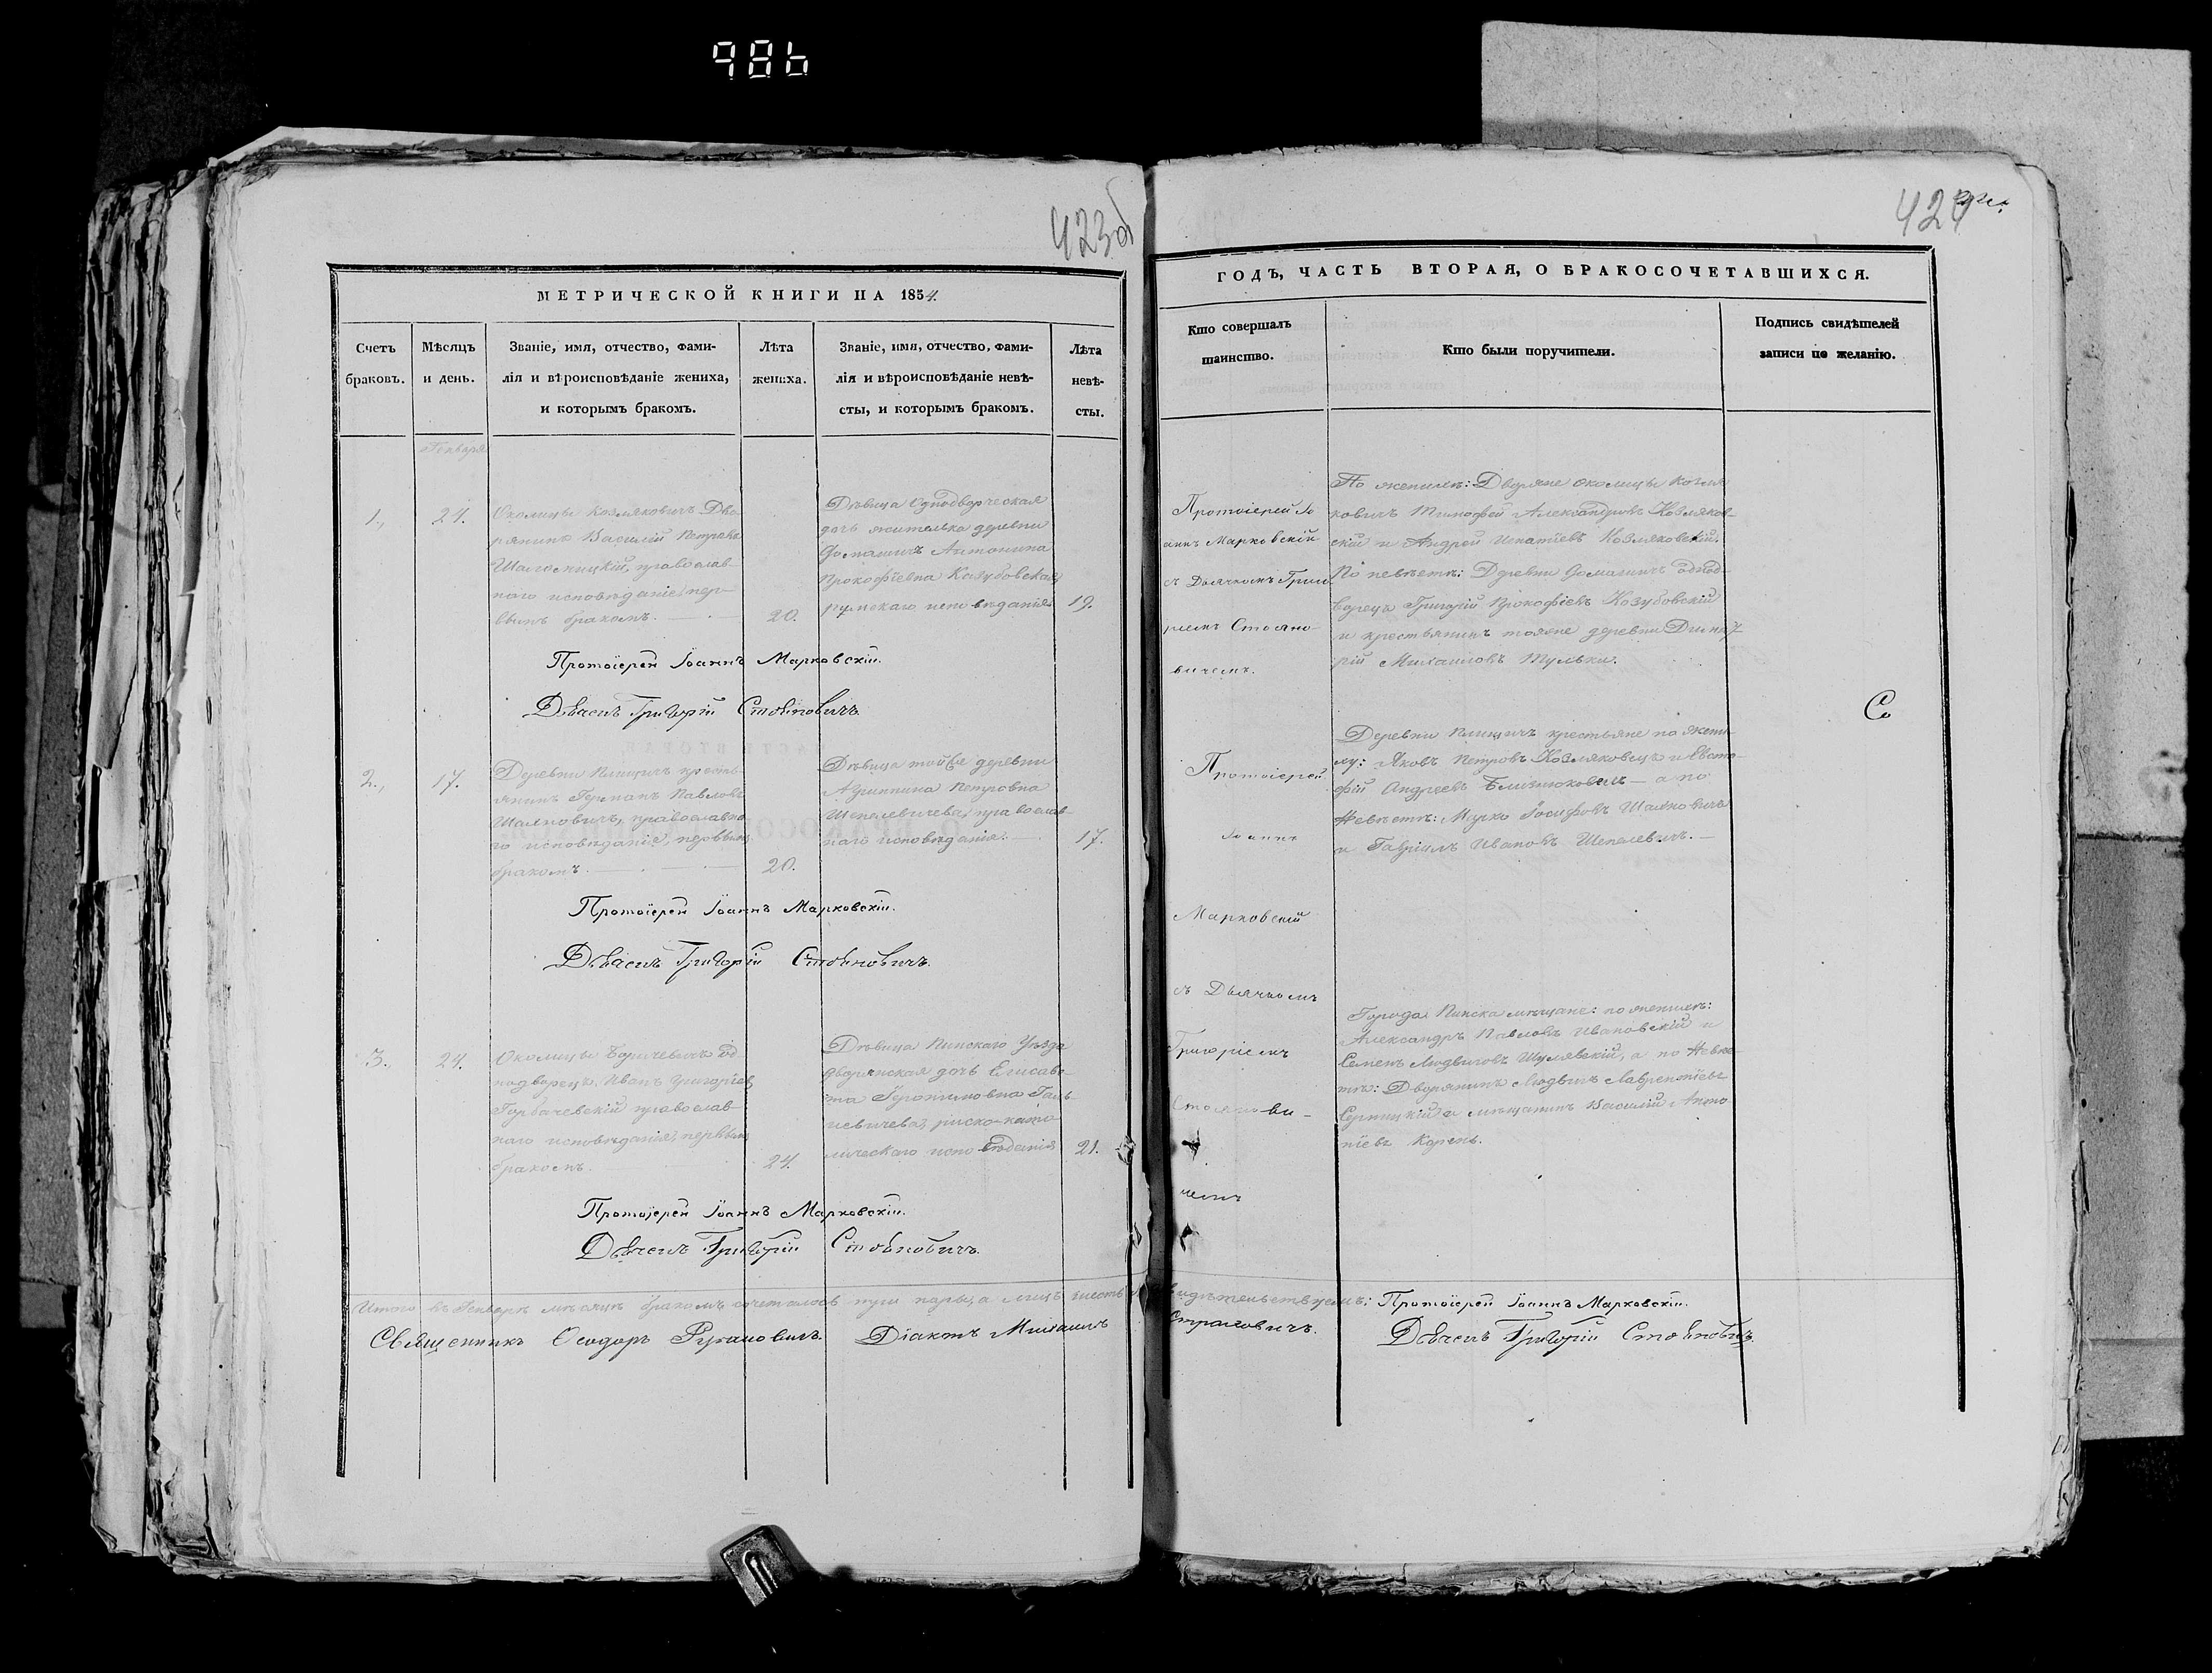 98b
423об
МЕТРИЧЕСКОЙ КНИГИ НА 1854.
Счетъ браковъ.
Мѣсяцъ и день.
Званіе, имя, отчество, фами-
лія и вѣроисповѣданіе жениха,
и которымъ бракомъ.
Лѣта жениха.
Званіе, имя, отчество, фами-
лія и вѣроисповѣданіе невѣ-
сты, и которымъ бракомъ.
Лѣта
невѣ-
сты.
Генваря
1., 24.
Околицы Козляковичъ Дво-
рянинъ Василій Петровъ
православ-
наго исповѣданія, пер-
вымъ бракомъ.
20.
Дѣвица Однодворческая
дочь жителька деревни
Домашичъ Антонина
Прокофіевна Козубовская
римскаго исповѣданія
19.
Протоіерей Іоаннъ Марковскій.
Дьячекъ Григорій Стояновичъ.
2., 17.
Деревни Плещичъ кресть-
янинъ Германъ Павловъ
Шаляновичъ, православна-
го исповѣданіе, первымъ
бракомъ.
20.
Дѣвица тойже деревни
Агриппина Петровна
Шепелевичева, православ-
наго исповѣданія.
17.
Протоіерей Іоаннъ Марковскій.
Дьячекъ Григорій Стояновичъ.
3. 24.
Околицы Боричевичъ од-
нодворецъ Иванъ Григоріев
Горбачевскій православ-
наго исповѣданія, первымъ
бракомъ.
24.
Дѣвица Пинскаго Уѣзда
дворянская дочь Елисаве-
та
римско-като
лическаго исповѣданія
21.
Протоіерей Іоаннъ Марковскій.
Дьячекъ Григорій Стояновичъ.
Итого въ Генварѣ мѣсяцѣ бракомъ сочеталось три пары, а лицъ шесть
Священникъ Ѳеодоръ Рункевичъ. Діаконъ Михаилъ
424
ГОДЪ, ЧАСТЬ ВТОРАЯ, О БРАКОСОЧЕТАВШИХСЯ.
Кто совершалъ
таинство.
Кто были поручители.
Подпись свидѣтелей
записи по желанію.
Протоіерей Іо
аннъ Марковскій
съ Дьячкомъ Григо
ріемъ Стояно-
вичемъ.
По женихѣ: Дворяне околицы Козля
ковичъ Тимофей Александровъ Козляков-
скій и Андрей Игнатіевъ Козляковскій.
По невѣстѣ: Деревни Домашичъ однод-
ворецъ Григорій Прокофіевъ Козубовскій
и крестьянинъ тояже деревни Димит
рій Михаиловъ Тулька.
Со
Протоіерей
Іоаннъ
Марковскій
съ Дьячкомъ
Григоріемъ
Стоянови-
чемъ
Деревни Плещичъ крестьяне по жени-
ху: Яковъ Петровъ Козляковецъ и Евста-
фій Андреевъ Близнюковичъ — а по
Невѣстѣ: Марко Іосифовъ Шаляновичъ
и Гавріилъ Ивановъ Шепелевичъ. —
Города Пинска мѣщане: по женихѣ:
Александръ Павловъ Ивановскій и
Семенъ Людвиговъ Шулявскій, а по Невѣс-
тѣ: Дворянинъ Людвигъ Лаврентіевъ
и мѣщанинъ Василій Анто
ніевъ Корень.
видѣтельствуемъ: Протоіерей Іоаннъ Марковскій.
Страховичъ. Дьячекъ Григорій Стояновичъ.